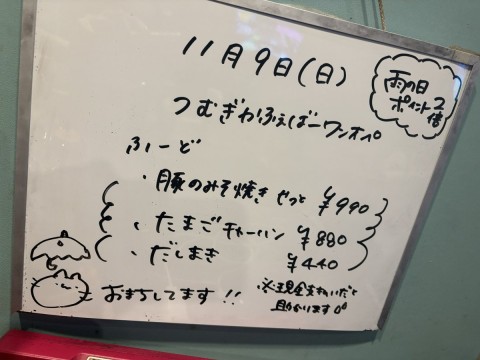 11月9日(日)
雨の日
ポイント2倍
つむぎかふぇばーワンオペ
ふーど
・豚のみそ焼き せっと ¥990
・たまごチャーハン ¥880
・だしまき ¥440
おまちしてます!!
※現金支払いだと
助かります